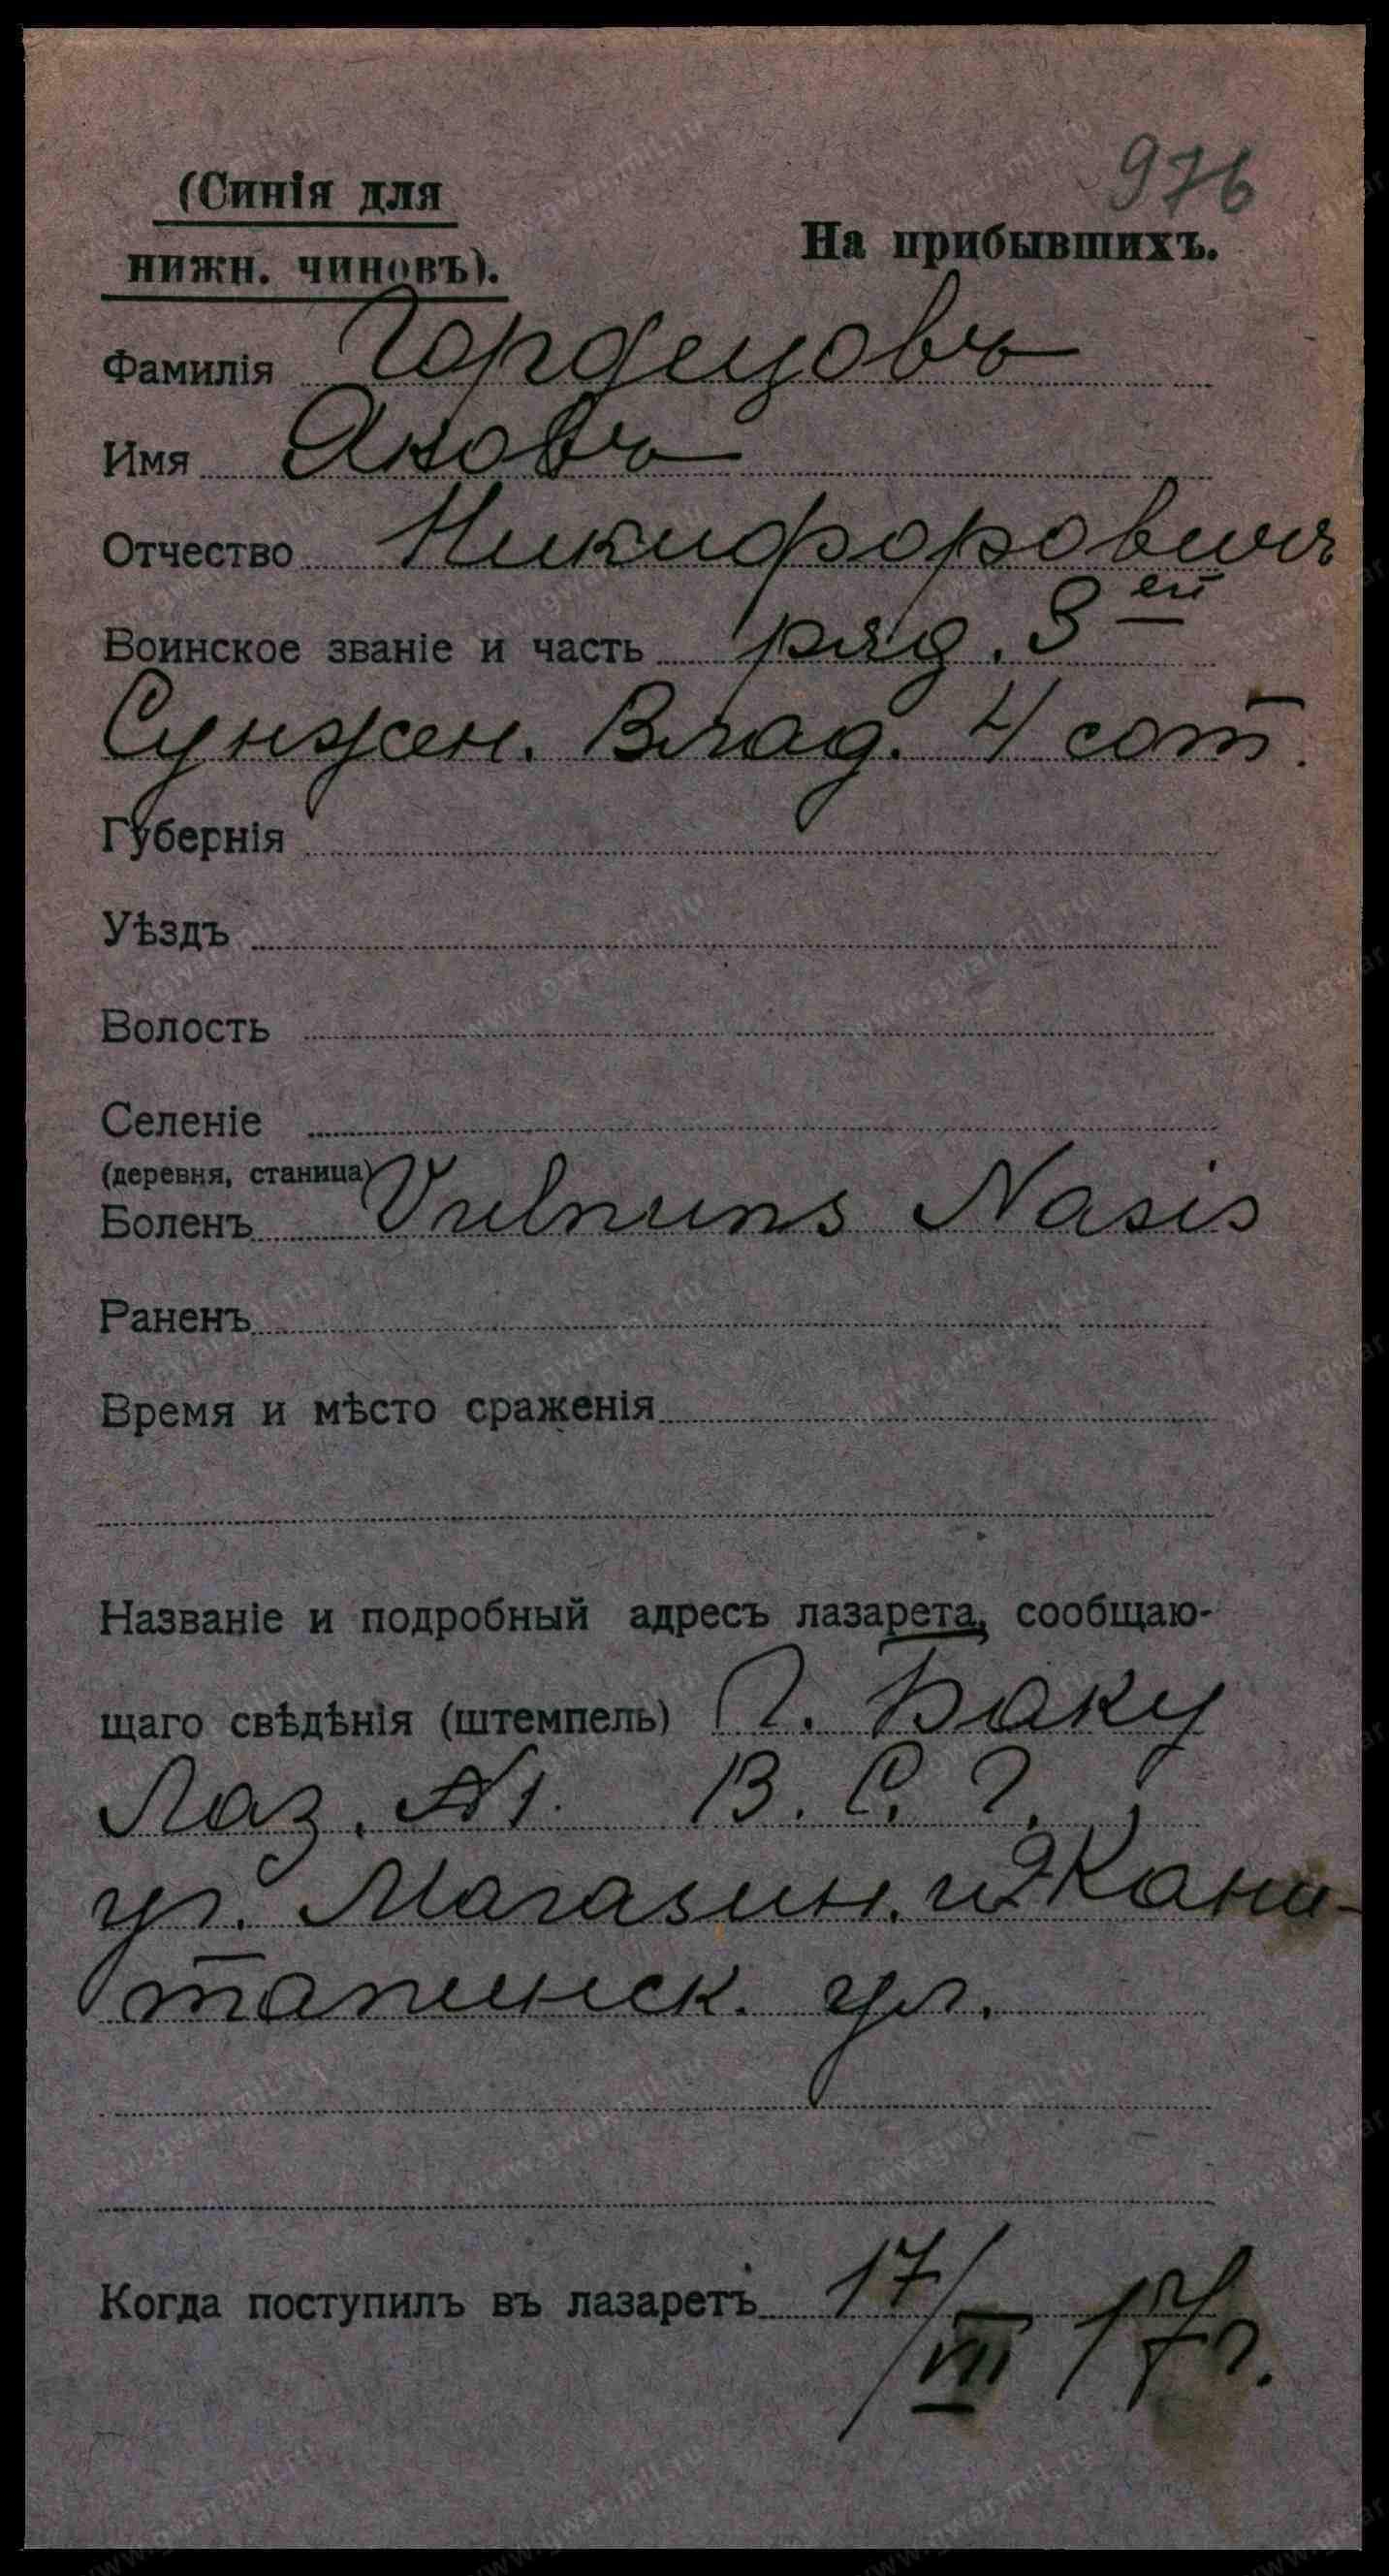 976
(Синія для
нижн. чиновъ).
На прибывшихъ.
Фамилія Гордецовъ
Имя Яковъ
Отчество Никифоровичъ
Воинское званіе и часть ряд. 3ей
Сунжен. Влад. 4 сот.
Губернія
Уѣздъ
Волость
Селеніе
(деревня, станица)
Боленъ Vulnuns Nasis
Раненъ
Время и мѣсто сраженія
Названіе и подробный адресъ лазарета, сообщаю-
щаго свѣдѣнія (штемпель) г. Баку
Лаз. №1. В. С. Г.
уг. Магазин. и Кани-
тапинск. ул.
Когда поступилъ въ лазаретъ 17/VII 17 г.